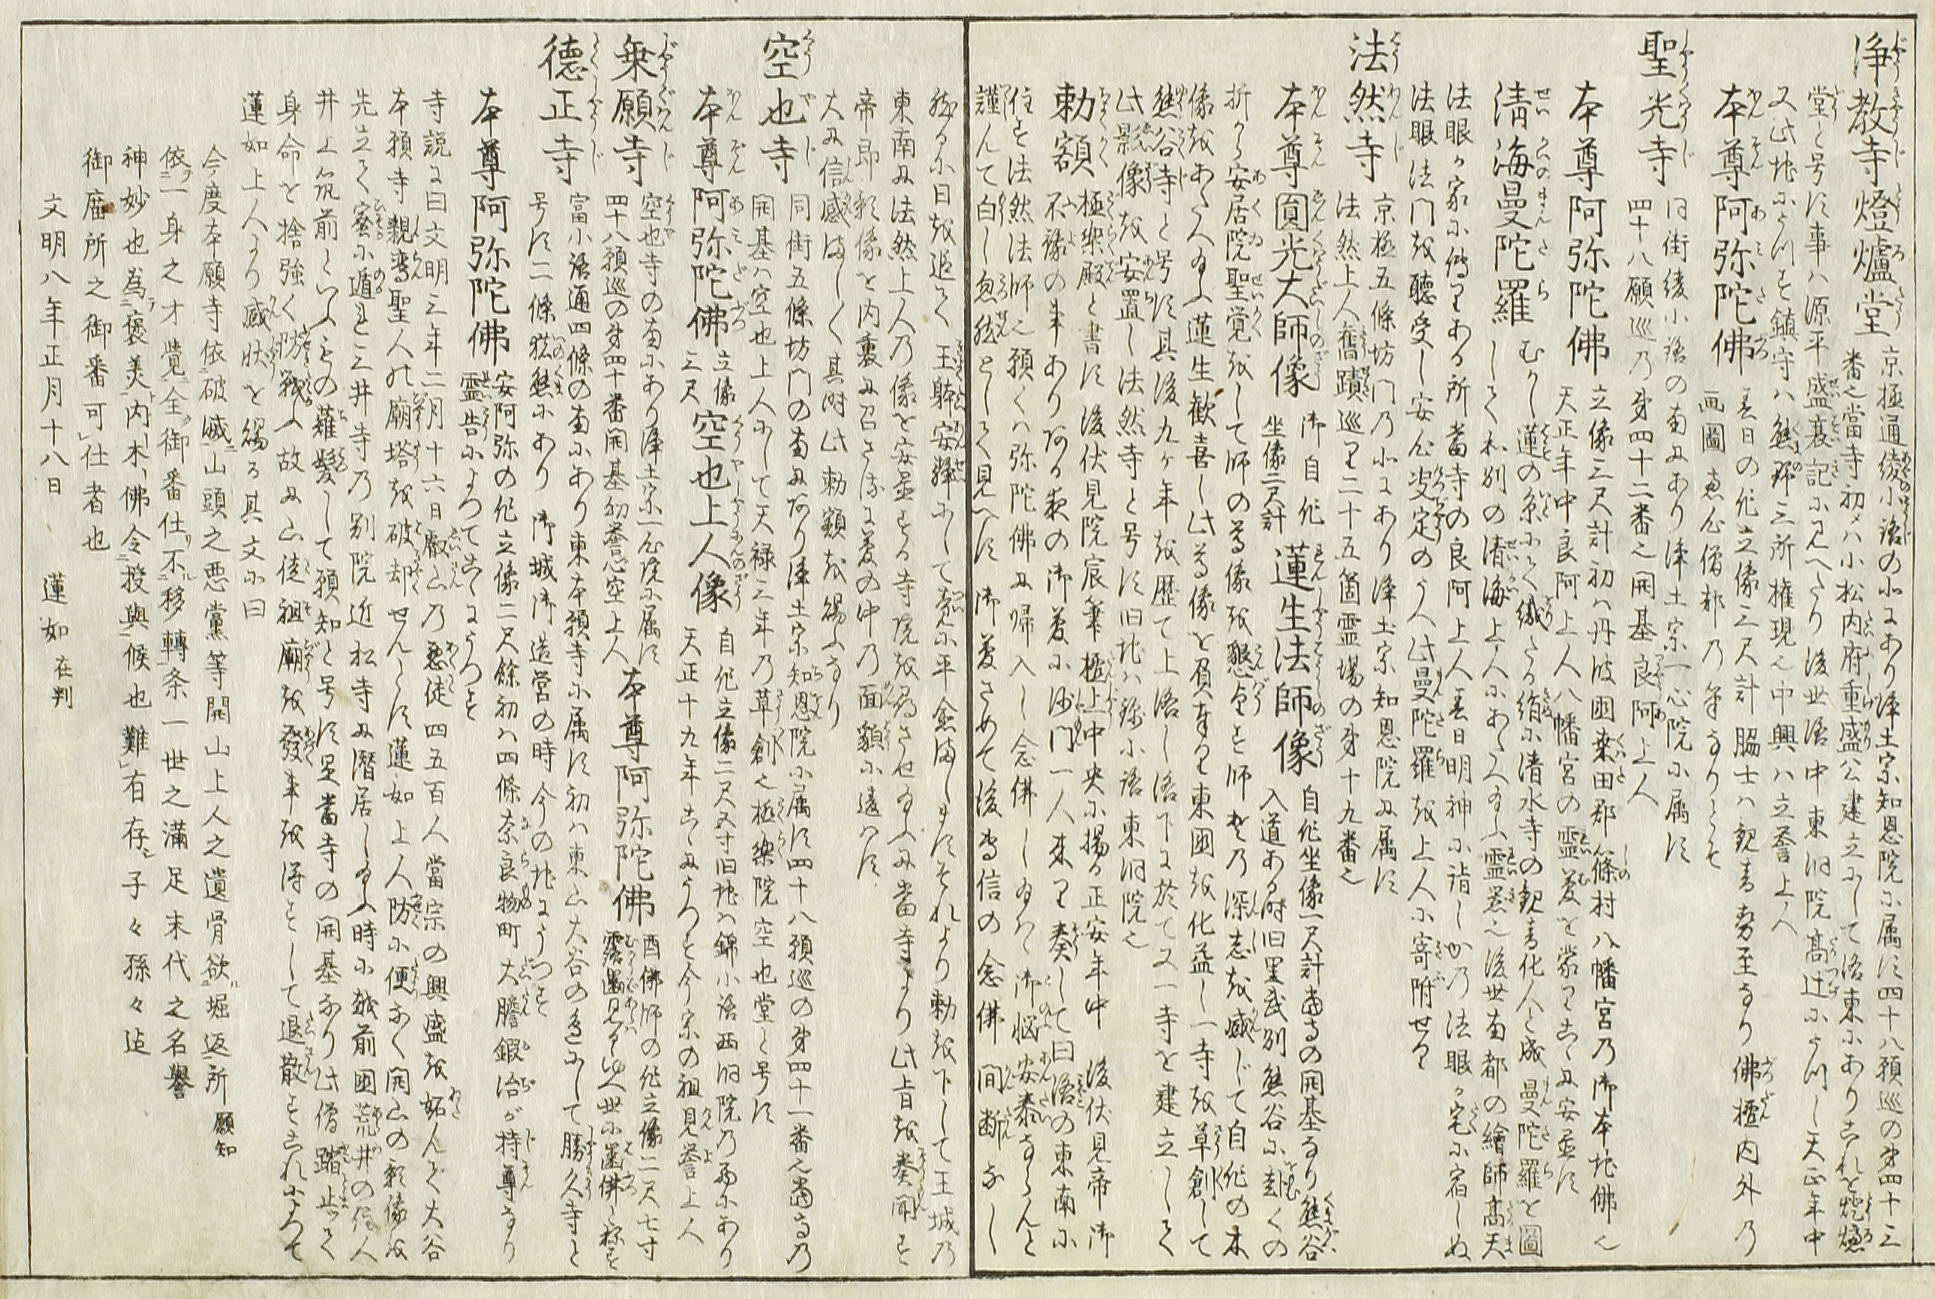 浄教寺燈爐堂 京極通綾小路の北にあり浄土宗知恩院に属す四十八願巡の第四十三
番也當寺初メハ小松内府重盛公建立にして洛東にありこれを燈爐
堂と号す事ハ源平盛衰記に見へたり後世洛中東洞院高辻にうつし天正年中
又此地にうつす鎮守ハ熊野三所権現也中興ハ立誉上人
本尊阿弥陀佛 春日の作立像三尺計脇士ハ観音勢至なり佛檀内外の
画圖恵心僧都の筆なりとそ
聖光寺 同街綾小路の南にあり浄土宗一心院に属す
四十八願巡の第四十二番也開基良阿上人
本尊阿弥陀佛 立像三尺計初ハ丹波國桑田郡篠村八幡宮の御本地佛也
天正年中良阿上人八幡宮の霊夢を蒙りこゝに安置す
清海曼陀羅 むかし蓮の糸にて織たる絹に清水寺の観音化人と成曼陀羅を圖
して和州の清海上人にあたへ給ふ霊器也後世南都の繪師高天
法眼か家に傳りある所當寺の良阿上人春日明神に詣しかの法眼か宅に宿しぬ
法眼法門を聴受し安心決定のうへ此曼陀羅を上人に寄附せり
法然寺 京極五條坊門の北にあり浄土宗知恩院に属す
法然上人舊蹟巡り二十五箇霊場の第十九番也
本尊圓光大師像 御自作
坐像二尺計 蓮生法師像 自作坐像一尺計當寺の開基なり熊谷
入道ある時旧里武州熊谷に赴くの
折から安居院聖覚をして師の尊像を懇望す師其の深志を感じて自作の木
像をあたへ給ふ蓮生歓喜し此尊像を負奉り東國を化益し一寺を草創して
熊谷寺と号す其後九ヶ年を歴て上洛し洛下に於て又一寺を建立して
此影像を安置し法然寺と号す旧地ハ錦小路東洞院也
勅額 極楽殿と書す後伏見院宸筆極上中央に揚る正安年中 後伏見帝御
不豫の事ありある夜の御夢に沙門一人来り奏して曰洛の東南に
住す法然法師也願くハ弥陀佛に帰入し念佛し給はゝ御悩安泰ならんと
謹んて白し忽然として見へす 御夢さめて後専信の念佛間断なし
然るに日を追て玉躰安穏にして竟に平愈ましますそれより勅を下して王城の
東南に法然上人の像を安置する寺院を尋させ給ふに當寺より此旨を奏聞す
帝即影像を内裏に召させたまふに夢の中の面貌に違ハす
大に信感ましく其時此勅額を賜ふなり
空也寺 同街五條坊門の南にあり浄土宗知恩院に属す四十八願巡の第四十一番也當寺の
開基ハ空也上人にして天禄三年の草創也極楽院空也堂と号す
本尊阿弥陀佛 立像
三尺 空也上人像 自作立像二尺五寸旧地ハ錦小路西洞院の西にあり
天正十九年こゝにうつす今宗の祖見誉上人
乗願寺 空也寺の南にあり浄土宗一心院に属す
四十八願巡の第四十番開基初誉心空上人 本尊阿弥陀佛 酉佛師の作立像二尺七寸
霊歯見るゆへ世に歯佛と称す
徳正寺 富小路通四條の南にあり東本願寺に属す初ハ東山大谷の邊にして勝久寺と
号す二條猪熊にあり 御城御造営の時今の地にうつす
本尊阿弥陀佛 安阿弥の作立像二尺餘初ハ四條奈良物町大膳鍛冶が持尊なり
霊告によつてこゝにうつす
寺説に曰文明三年二月十六日叡山の悪徒四五百人當宗の興盛を妬んで大谷
本願寺親鸞聖人の廟塔を破却せんとす蓮如上人防に便なく開山の影像を
先立て密に遁れ三井寺の別院近松寺に潜居し給ふ時に越前國荒井の侍人
井上筑前といふもの薙髪して願知と号す是當寺の開基なり此僧踏止て
身命を捨強く防戦ふ故に山徒祖廟を發事を得すして退散すこれによつて
蓮如上人より感状を賜る其文に曰
今度本願寺依破滅山頭之悪黨等開山上人之遺骨欲堀返所 願知
依一身之才覚全御番仕不移轉条一世之滿足末代之名譽
神妙也為褒美内木佛令授與候也難有存子々孫々迄
御庿所之御番可仕者也
文明八年正月十八日 蓮如 在判